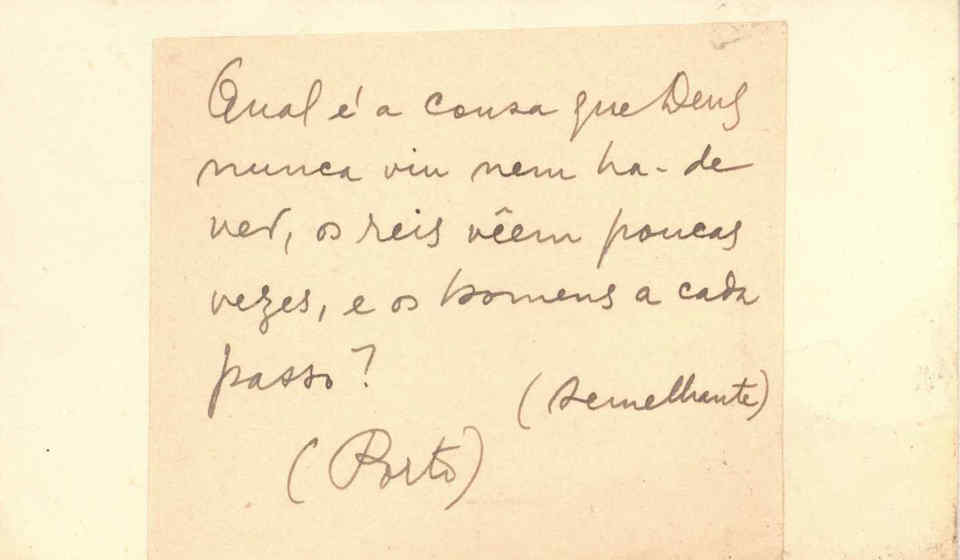 Qual é a cousa que Deus
nunca viu nem ha-de
ver, os reis vêem poucas
vezes, e os homens a cada
passo?
(semelhante)
(Porto)